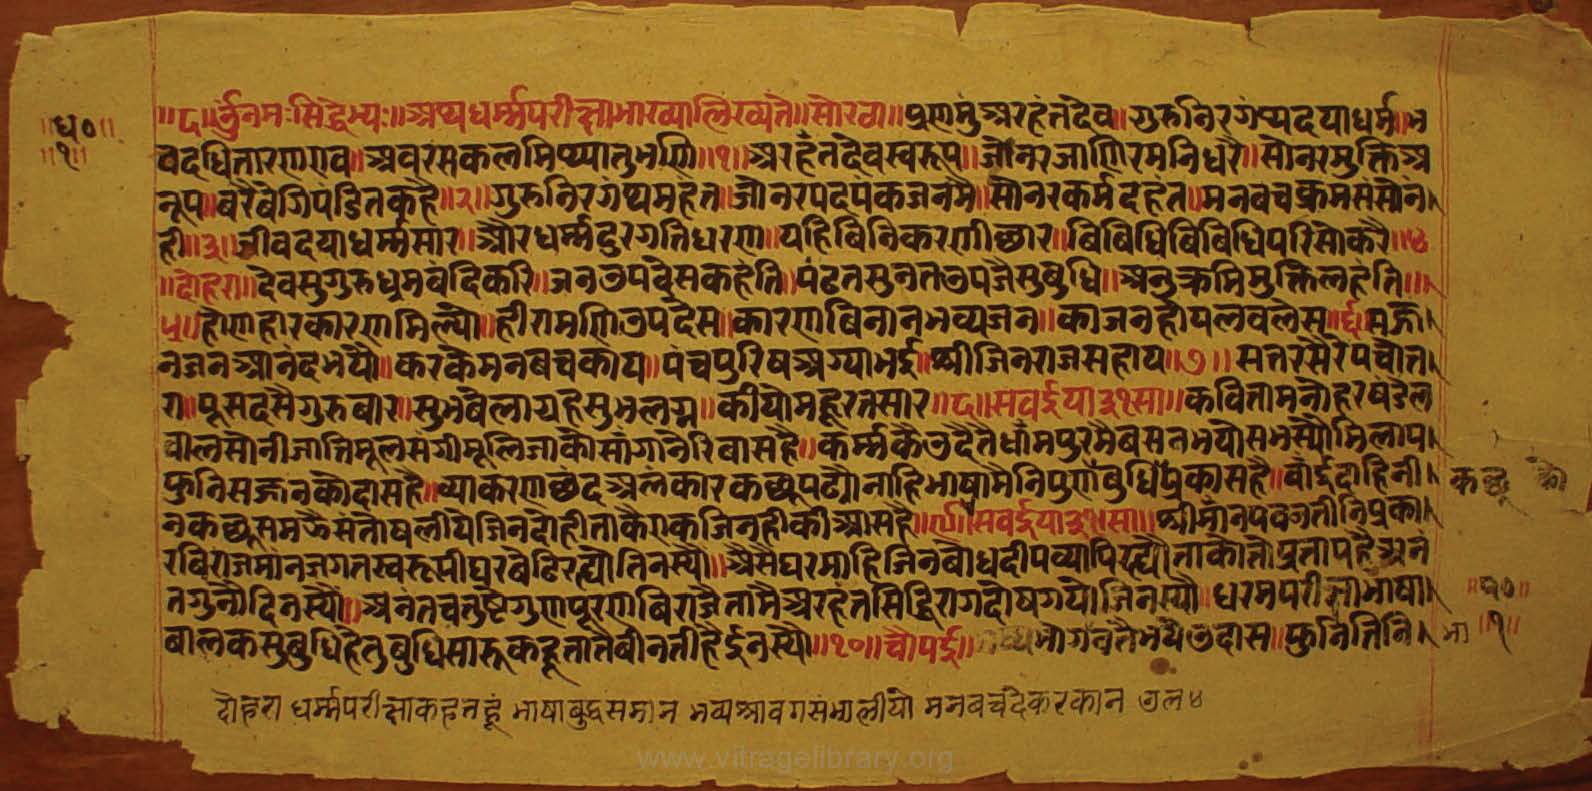 ॥ध०॥
॥१॥
॥८॥र्उंनमःसिद्धेभ्यः॥अथधर्म्मपरीक्षाभाख्यालिख्यते॥सोरठा॥प्रणमुंअरहंतदेव॥गुरुनिरगंथदयाधर्म॥भ
वदधितारणएव॥अवरसकलमिथ्यातुभणि॥१॥अरहंतदेवस्वरूप॥जोनरजाणिरमनिधरै॥सोनरमुक्तिअ
नूप॥बरैवेगिपंडितकहै॥२॥गुरुनिरगंथमहंत॥जोनरपदपंकजनमै॥सोनरकर्मदहंत॥मनबचक्रमसंसोनं
ही॥३॥जीवदयाधर्म्मसार॥औरधर्म्मदुरगतिधरण॥यहिबिनिकरणीछार॥बिबिधिबिबिधिपरिसोकरै॥४
॥दोहरा॥देवसुगुरुध्रमवंदिकरि॥जनउपदेसकहंति॥पंढतसुनतउपजैसुबुधि॥अनुक्रमिमुक्तिलहंति॥
५॥होणहारकारणमिल्यो॥हीरामणिउपदेस॥कारणबिनानभव्यजन॥काजनहोयलवलेस॥६॥सज्ज
नजनआनंदभयो॥करकैमनबचकाय॥पंचपुरिषअग्याभई॥श्रीजिनराजसहाय॥७॥सत्तरसैरपचोत
रा॥पूसदसैगुरुबार॥सुभबेलाग्रहसुभलग्न॥कीयोमहूरतसार॥८॥सवईया३१सा॥कवितामनोहरषंडेल
वालसोनीजातिमूलसंगीमूलिजाकौसांगानेरिबासहै॥कर्म्मकैउदैतैधांमपुरमैबसनभयोसभस्यौमिलाप
फुनिसज्जनकोदासहै॥व्याकरणछंदअलंकारकछूपढ्यौनाहिभाषामैनिपुणबुधिप्रकासहै॥बांईदाहिनी
कछू
नकछूसमझैसंतोषलीयेजिनदोहीताकैएकजिनहीकीआसहै॥९॥सवईया३१सा॥
रबिराजमांनजगतस्वरूपी
तगुनौदिनस्यौ॥अनंतचतुष्टैगुणपूरणबिराजैतामैअरहंतसिद्धिरागदोषगयोजिनस्यौ॥धरमपरीक्षाभाषा
॥१॥
बालकसुबुधिहेतुबुधिसारूकहूतातैबीनतीहैईनस्यौ॥१०॥चौपई॥
दोहरा धर्म्मपरीक्षाकहतहूं भाषाबुद्धसमान भव्यश्रावग
www.vitragelibrary.org